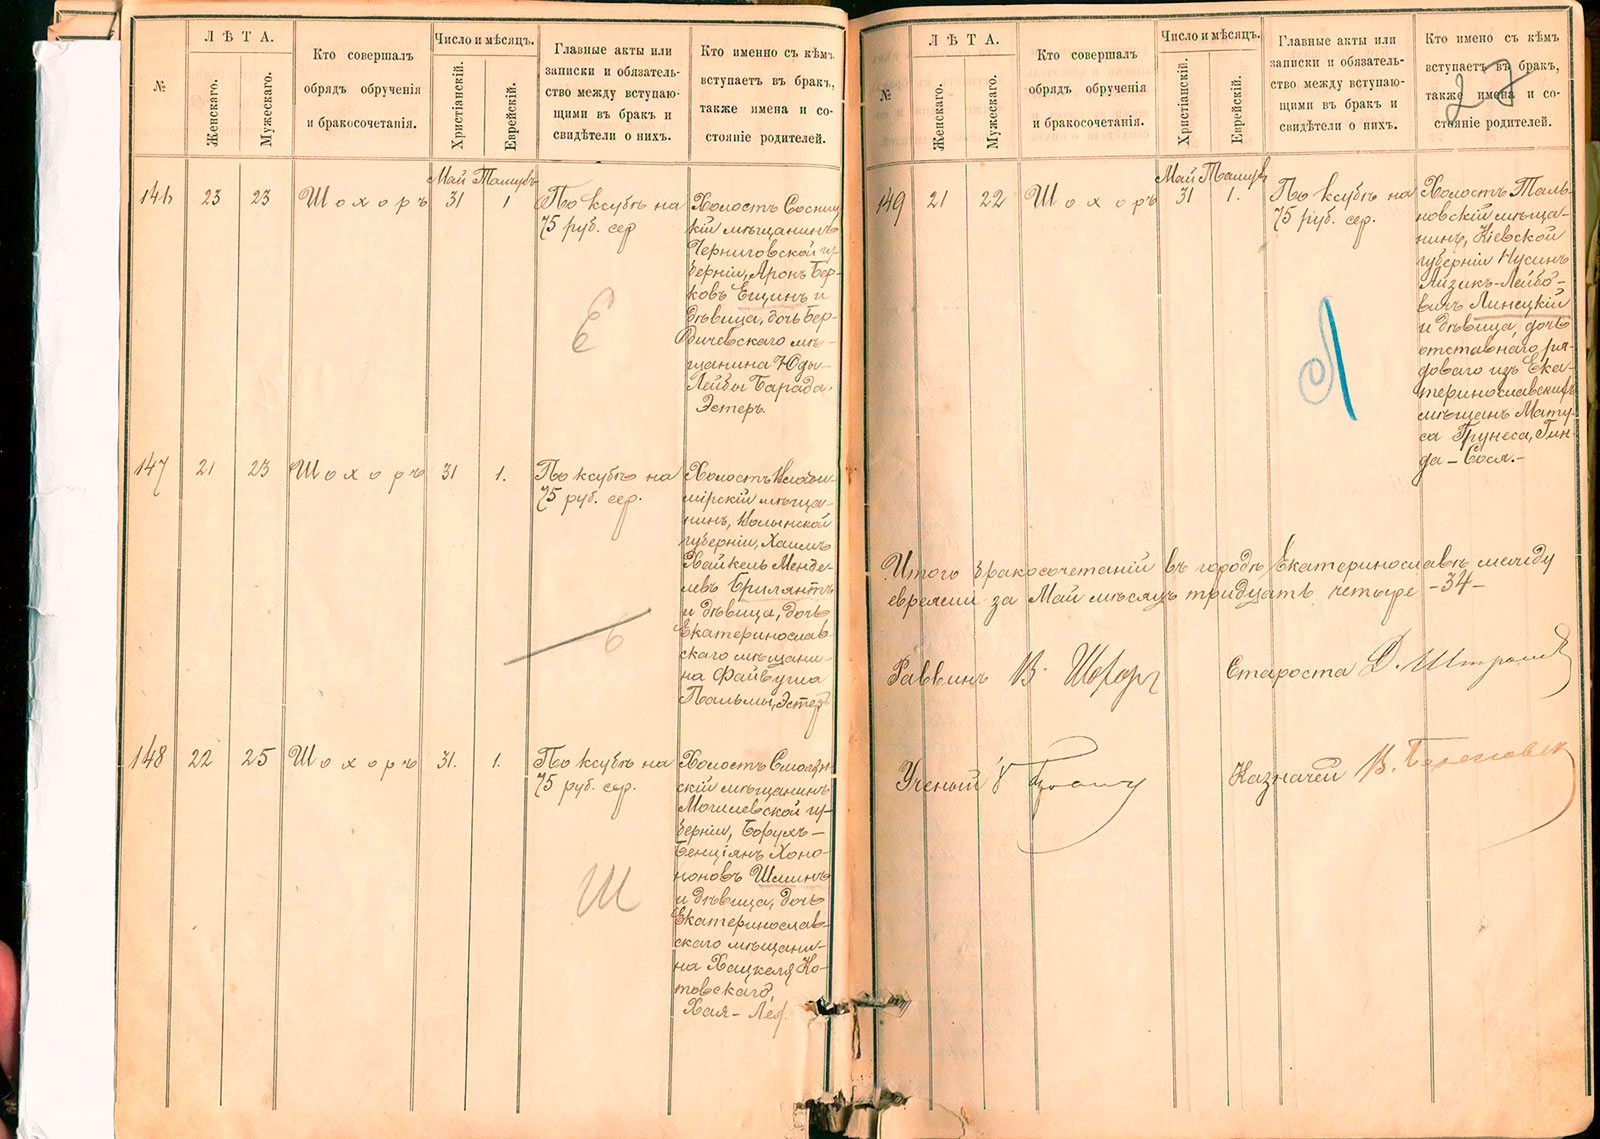 №
ЛѢТА.
Женскаго.
Мужескаго.
Кто совершалъ
обрядъ обрученія
и бракосочетанія.
Число и мѣсяцъ.
Христіанскій.
Еврейскій.
Главные акты или
записки и обязатель-
ство между вступаю-
щими въ бракъ и
свидѣтели о нихъ.
Кто именно съ кѣмъ
вступаетъ въ бракъ,
также имена и со-
стояніе родителей.
Май Тамузъ
146 23 23 Шохоръ 31 1
По ксубѣ на
75 руб. сер
Холостъ Сосниц
кій мѣщанинъ
Черниговской гу-
берніи, Аронъ Бер-
ковъ Ещинъ и
дѣвица, дочь Бер-
дичевскаго мѣ-
щанина Юды-
Лейбы Барада.
Эстеръ.
Е
147 21 23 Шохоръ 31 1.
По ксубѣ на
75 руб. сер.
Холостъ Влади-
мірскій мѣща-
нинъ, Волынской
губерніи, Хаимъ
Хайкель Менде-
левъ Брилянтъ
и дѣвица, дочь
Екатеринослав-
скаго мѣщани-
на Файвуша
Пальмы, Эстеръ
Б
148 22 25 Шохоръ 31. 1.
По ксубѣ на
75 руб. сер.
Холостъ Смолян-
скій мѣщанинъ
Могилевской гу-
берніи, Борухъ-
Бенціянъ Хоно-
ноновъ Шминъ
и дѣвица, дочь
Екатеринослав-
скаго мѣщани-
на Хацкеля Ко-
товскаго,
Хая-Лея.
Ш
№
ЛѢТА.
Женскаго.
Мужескаго.
Кто совершалъ
обрядъ обрученія
и бракосочетанія.
Число и мѣсяцъ.
Христіанскій.
Еврейскій.
Главные акты или
записки и обязатель-
ство между вступаю-
щими въ бракъ и
свидѣтели о нихъ.
Кто имено съ кѣмъ
вступаетъ въ бракъ,
также имена и со-
стояніе родителей.
27
Май Тамузъ
149 21 22 Шохоръ 31 1.
По ксубѣ на
75 руб. сер.
Холостъ Таль-
новскій мѣща-
нинъ, Кіевской
губерніи Нусинъ
Айзикъ-Лейбо-
вичъ Линецкій
и дѣвица, дочь
отставнаго ря-
доваго изъ Ека-
теринославскихъ
мѣщанъ Мату-
са Грунеса, Гин-
да-Сося.-
Л
Итого бракосочетаній въ городѣ Екатеринославѣ между
евреями за Май мѣсяцъ тридцать четыре -34-
Раввинъ В. Шохоръ
Староста
Ученый
Казначей В.